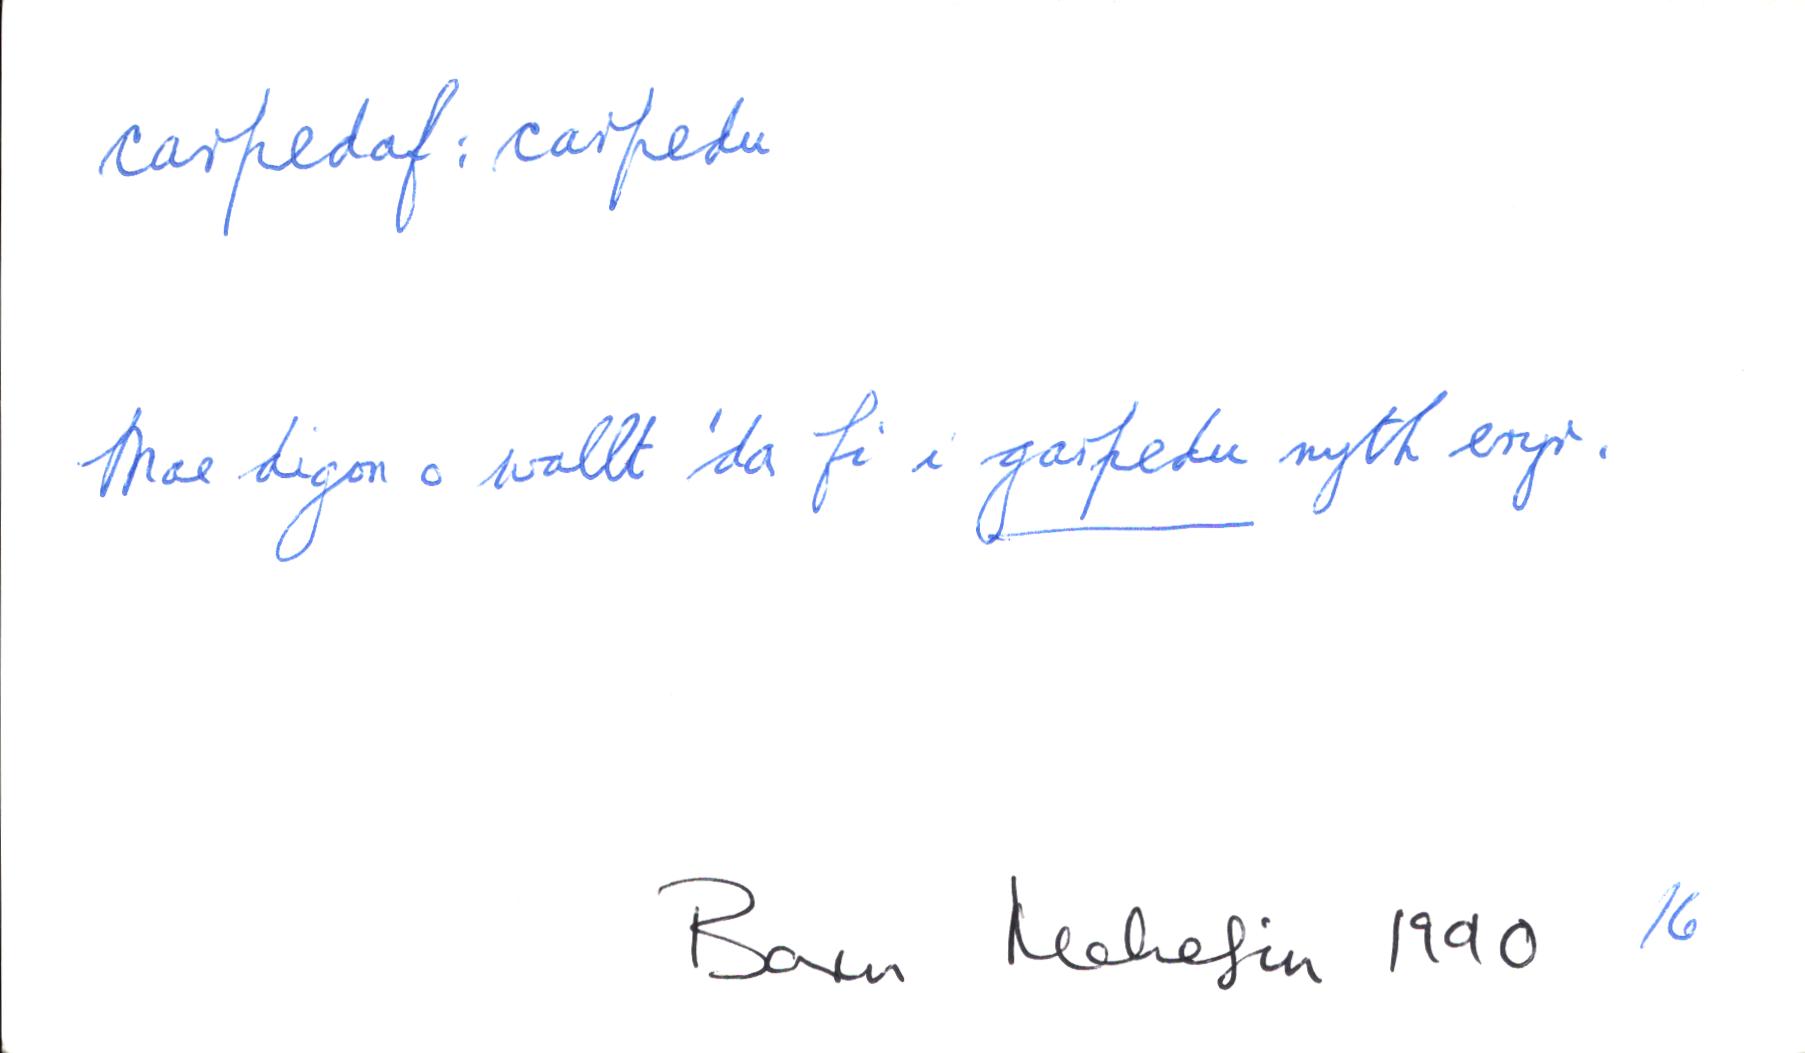 carpedaf: carpedu
Mae digon o wallt 'da fi i garpedu nyth eryr.
Barn Mehefin 1990 16